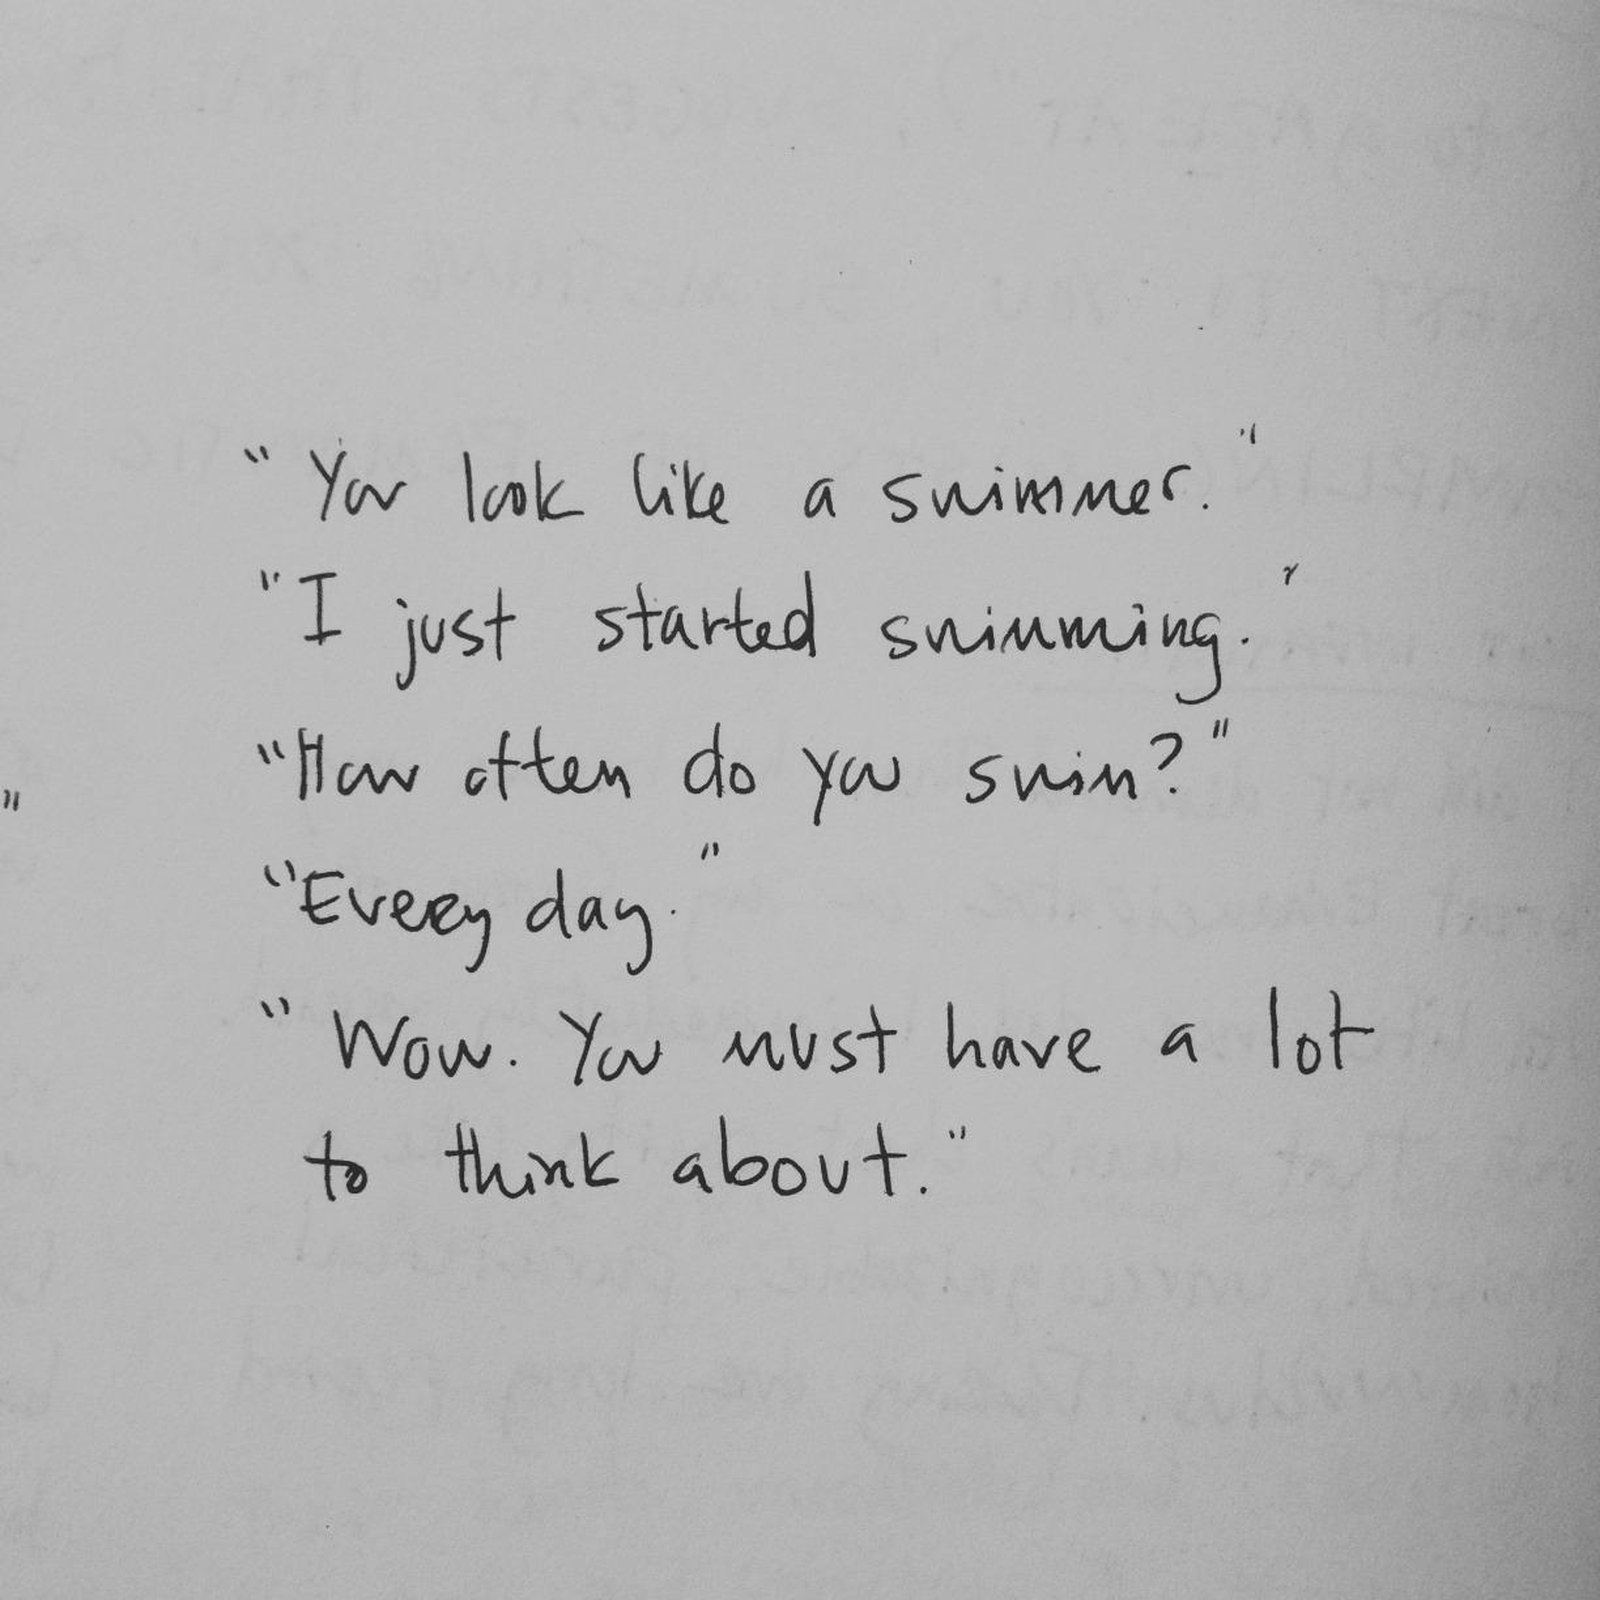 "You look like a swimmer."
"I just started swimming."
"How often do you swim?"
"Every day."
"Wow. You must have a lot
to think about."